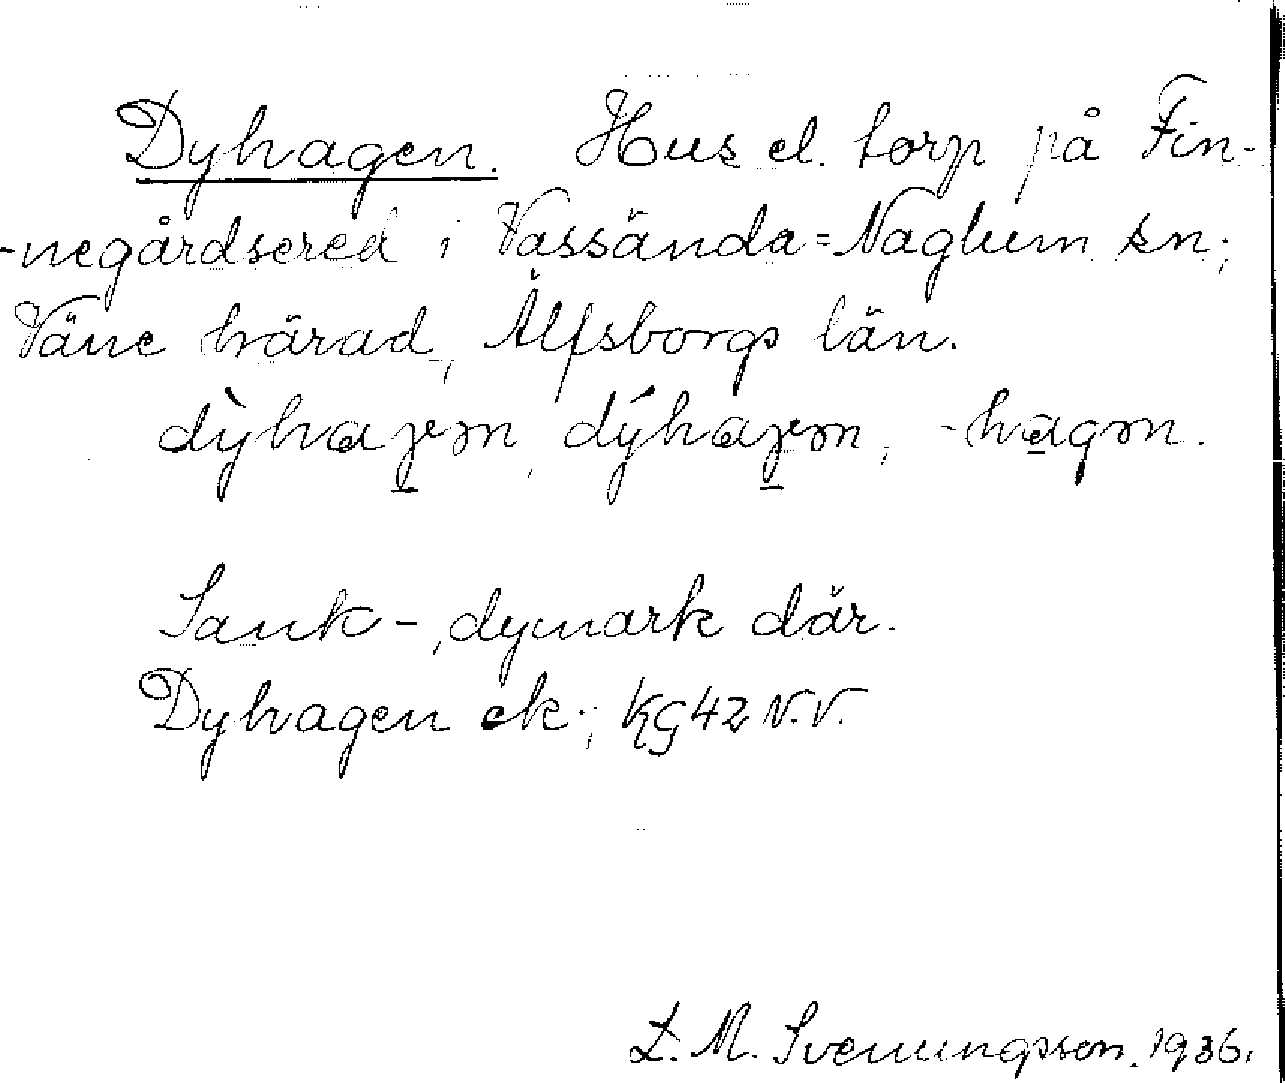 Dyhagen. Hus el. torp på Fin-
-negårdsered i Vassända=Naglum sn;
Väne härad, Älfsborgs län.
dỳhaɡen, dýhaɡen, -hagən.
Sank-, dymark där.
Dyhagen ek.; KG42 N.V.
L. M. Svenungsson. 1936.